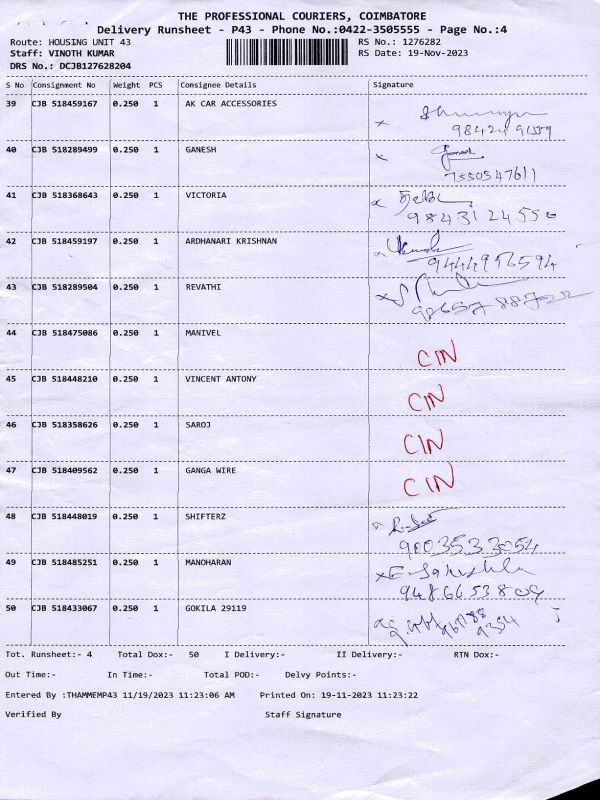 THE PROFESSIONAL COURIERS, COIMBATORE
Delivery Runsheet - P43 - Phone No.:0422-3505555 - Page No.:4
Route: HOUSING UNIT 43 RS No.: 1276282
Staff: VINOTH KUMAR RS Date: 19-Nov-2023
DRS No.: DCJB127628204
S No Consignment No Weight PCS Consignee Details Signature
39 CJB 518459167 0.250 1 AK CAR ACCESSORIES
40 CJB 518289499 0.250 1 GANESH
7550547611
41 CJB 518368643 0.250 1 VICTORIA
9843124556
42 CJB 518459197 0.250 1 ARDHANARI KRISHNAN
9444956594
43 CJB 518289504 0.250 1 REVATHI
44 CJB 518475086 0.250 1 MANIVEL
CIN
45 CJB 518448210 0.250 1 VINCENT ANTONY
CIN
46 CJB 518358626 0.250 1 SAROJ
CIN
47 CJB 518409562 0.250 1 GANGA WIRE
CIN
48 CJB 518448019 0.250 1 SHIFTERZ
9003533054
49 CJB 518485251 0.250 1 MANOHARAN
9486653809
50 CJB 518433067 0.250 1 GOKILA 29119
Tot. Runsheet:- 4 Total Dox:- 50 I Delivery:- II Delivery:- RTN Dox:-
Out Time:- In Time:- Total POD:- Delvy Points:-
Entered By :THAMMEMP43 11/19/2023 11:23:06 AM Printed On: 19-11-2023 11:23:22
Verified By Staff Signature